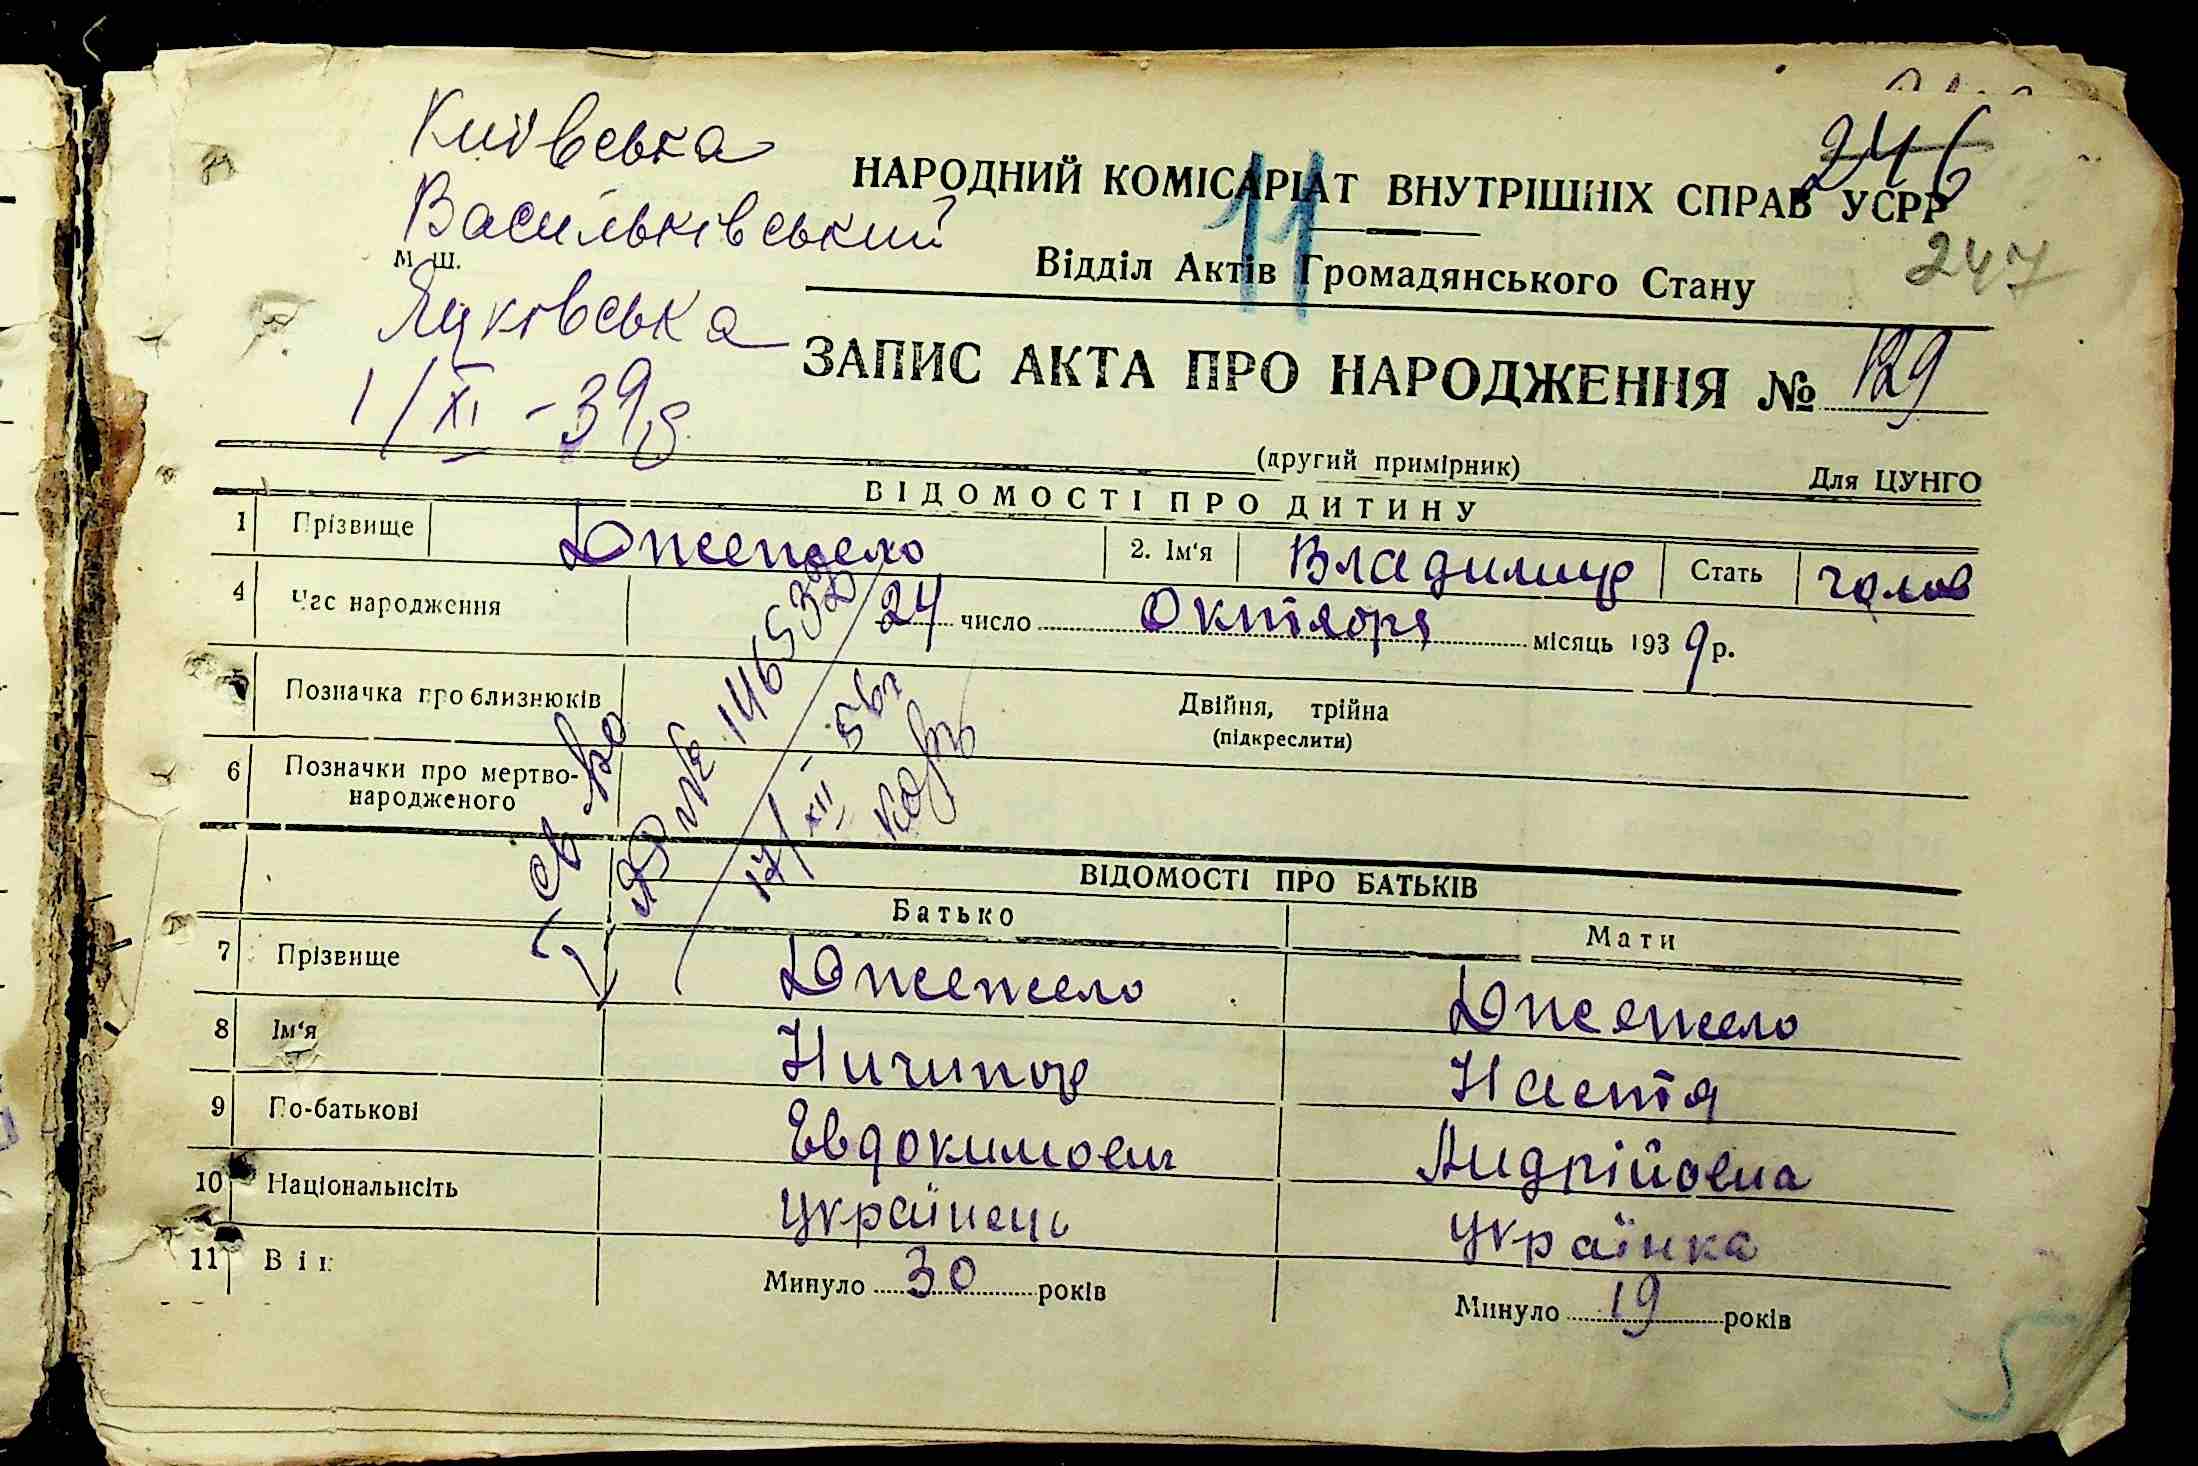 Київська
Васильківський
м ш.
Яцківська
1/XI - 39 р
246
247
11
НАРОДНИЙ КОМІСАРІАТ ВНУТРІШНІХ СПРАВ УСРР
Відділ Актів Громадянського Стану
ЗАПИС АКТА ПРО НАРОДЖЕННЯ № 129
(другий примірник) Для ЦУНГО
ВІДОМОСТІ ПРО ДИТИНУ
1 Прізвище Джежело 2. Ім'я Владимир Стать чолов
4 Час народження 24 число Октября місяць 1939 р.
Позначка про близнюків Двійня, трійна
(підкреслити)
6 Позначки про мертво-
народженого
св во
ЯЮ № 1465532
17/XII - 56 г
ВІДОМОСТІ ПРО БАТЬКІВ
Батько Мати
7 Прізвище Джежело Джежело
8 Ім'я Ничипор Настя
9 По-батькові Евдокимович Андрійовна
10 Національність Українець Українка
11 Вік Минуло 30 років Минуло 19 років
5